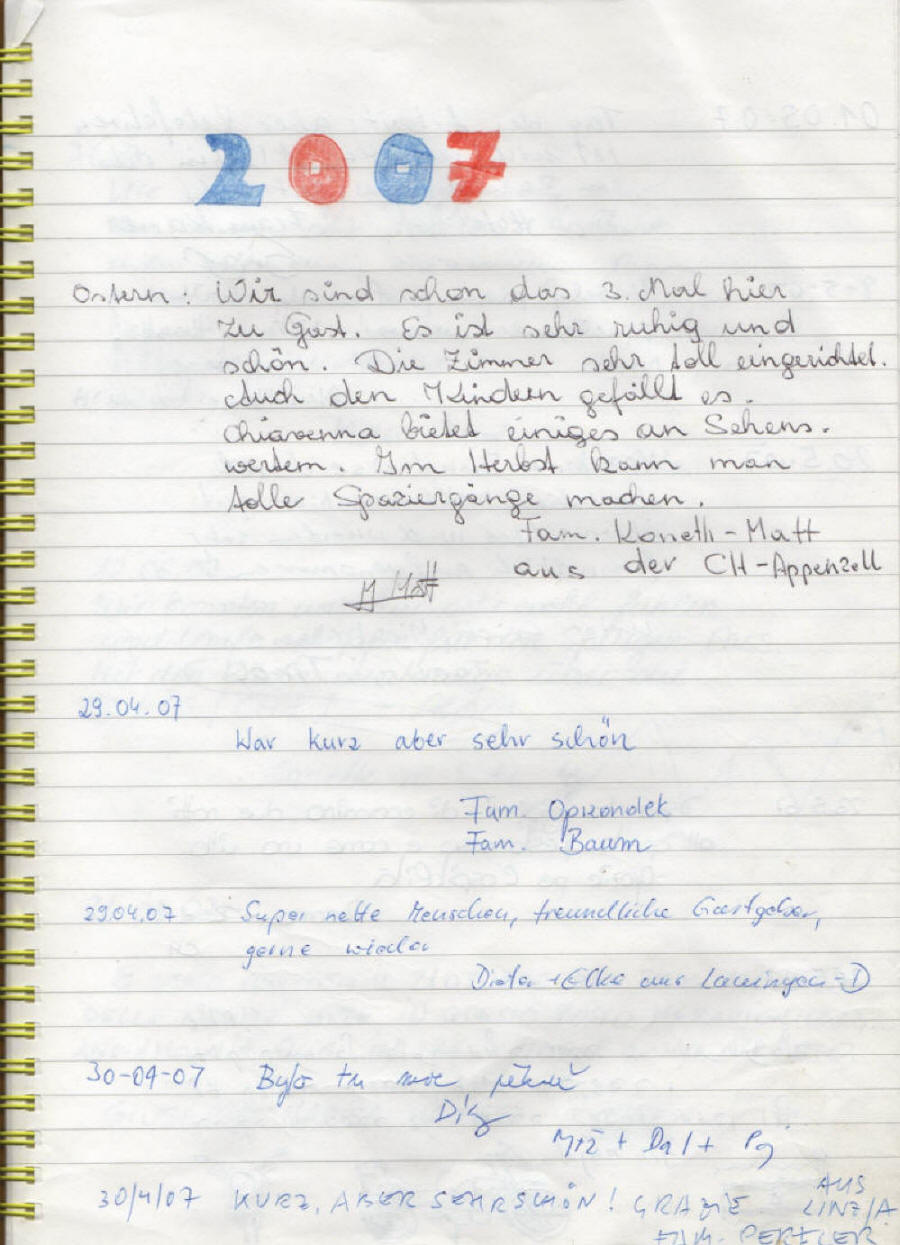 2007
Ostern: Wir sind schon das 3. Mal hier
zu Gast. Es ist sehr ruhig und
schön. Die Zimmer sehr toll eingerichtet.
Auch den Kindern gefällt es.
Chiavenna bietet einiges an Sehens-
wertem. Im Herbst kann man
tolle Spaziergänge machen.
Fam. Konetli-Matt
aus der CH-Appenzell
M Matt
29.04.07
War kurz aber sehr schön
Fam. Oprzondek
Fam. Baum
29.04.07 Super nette Menschen, freundliche Gastgeber,
gerne wieder
Dieter + Elke aus Lauingen-D
30-04-07 Bylo tu moc pěkně
Díky
30/4/07 KURZ, ABER SEHR SCHÖN! GRAZIE
AUS
LINZ/A
FAM.